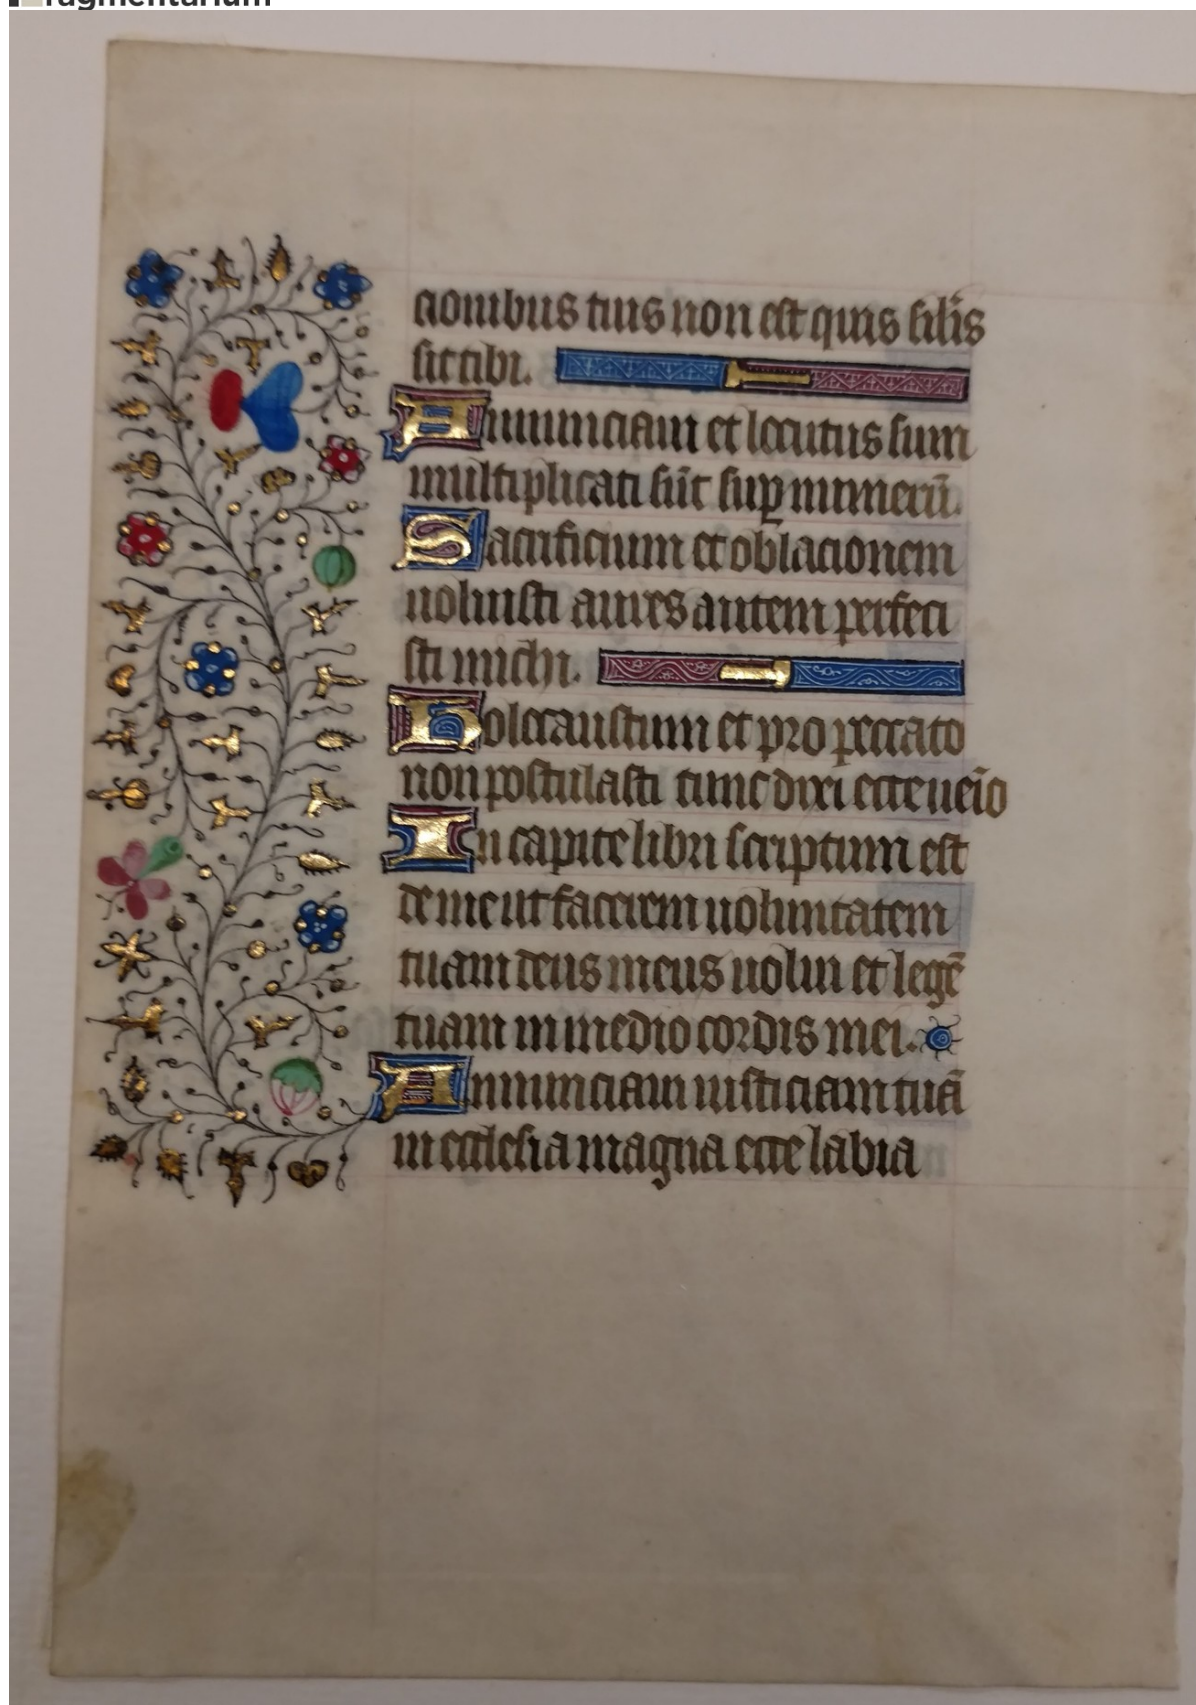 ragmentarium
cionibus tuis non est quis silis̄
sit tibi.
Annunciam et locutus sum
multiplicati sūt suꝑ numerū.
Sacrificium et oblacionem
noluisti aures autem perfeci
sti michi.
Holocaustum et pro peccato
non postulasti tunc dixi ecce ueīo
In capite libri scriptum est
de me ut facerem uoluntatem
tuam deus meus uolui et legē
tuam in medio cordis mei.
Annunciaui iusticiam tuā
in ecclesia magna ecce labia